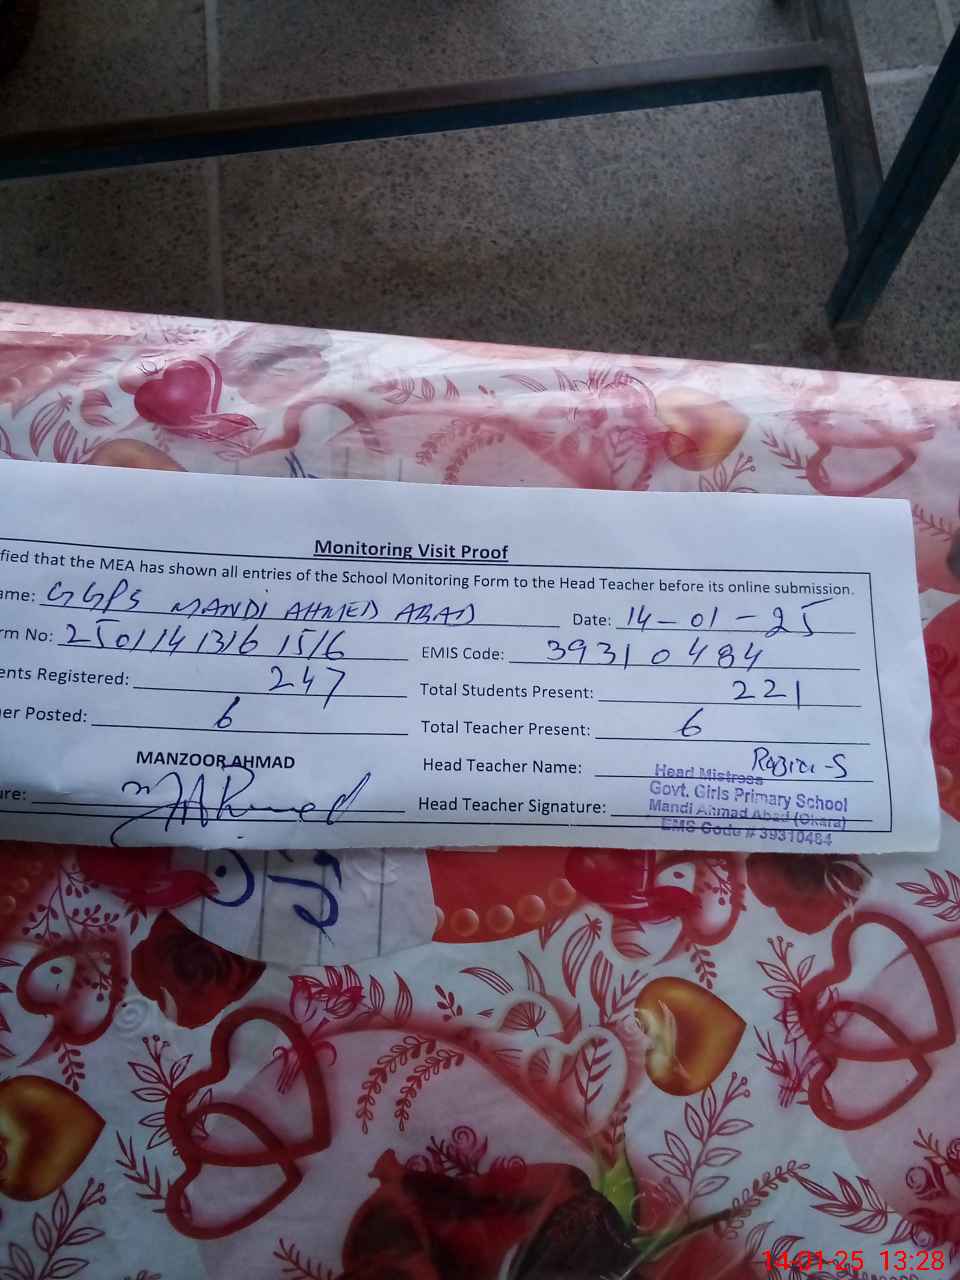 Monitoring Visit Proof
fied that the MEA has shown all entries of the School Monitoring Form to the Head Teacher before its online submission.
ame: GGPS MANDI AHMED ABAD Date: 14-01-25
rm No: 2501141316 1516 EMIS Code: 39310484
ents Registered: 247 Total Students Present: 221
er Posted: 6 Total Teacher Present: 6
MANZOOR AHMAD Head Teacher Name: Rabia-S
ure: Head Teacher Signature:
Head Mistress
Govt. Girls Primary School
Mandi Ahmad Abad (Okara)
EMS Code # 39310484
14-01-25 13:28